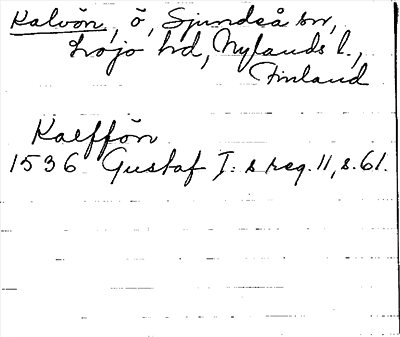 Kalvön, ö, Sjundeå sn,
Lojo hd, Nylands l.,
Finland
Kalffön
1536 Gustaf I:s reg. 11, s. 61.